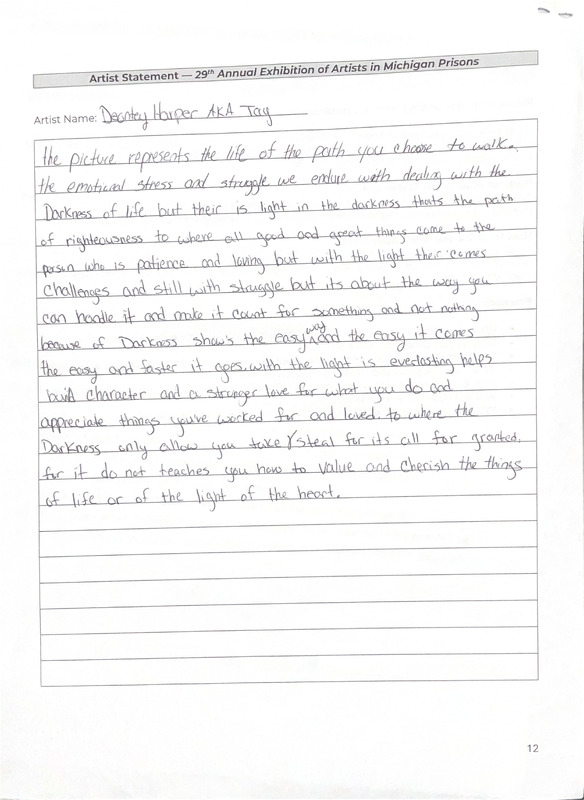 Artist Statement — 29th Annual Exhibition of Artists in Michigan Prisons
Artist Name: Deantey Harper AKA Tag
the picture represents the life of the path you choose to walk.
the emotional stress and struggle we endure with dealing with the
Darkness of life but their is light in the darkness thats the path
of righteousness to where all good and great things come to the
person who is patience and loving but with the light their comes
Challenges and still with struggle but its about the way you
can handle it and make it count for something and not nothing
because of Darkness show's the easy way and the easy it comes
the easy and faster it goes. with the light is everlasting helps
build character and a stronger love for what you do and
appreciate things you've worked for and loved. to where the
Darkness only allow you take / steal for its all for granted.
for it do not teaches you how to value and cherish the things
of life or of the light of the heart.
12